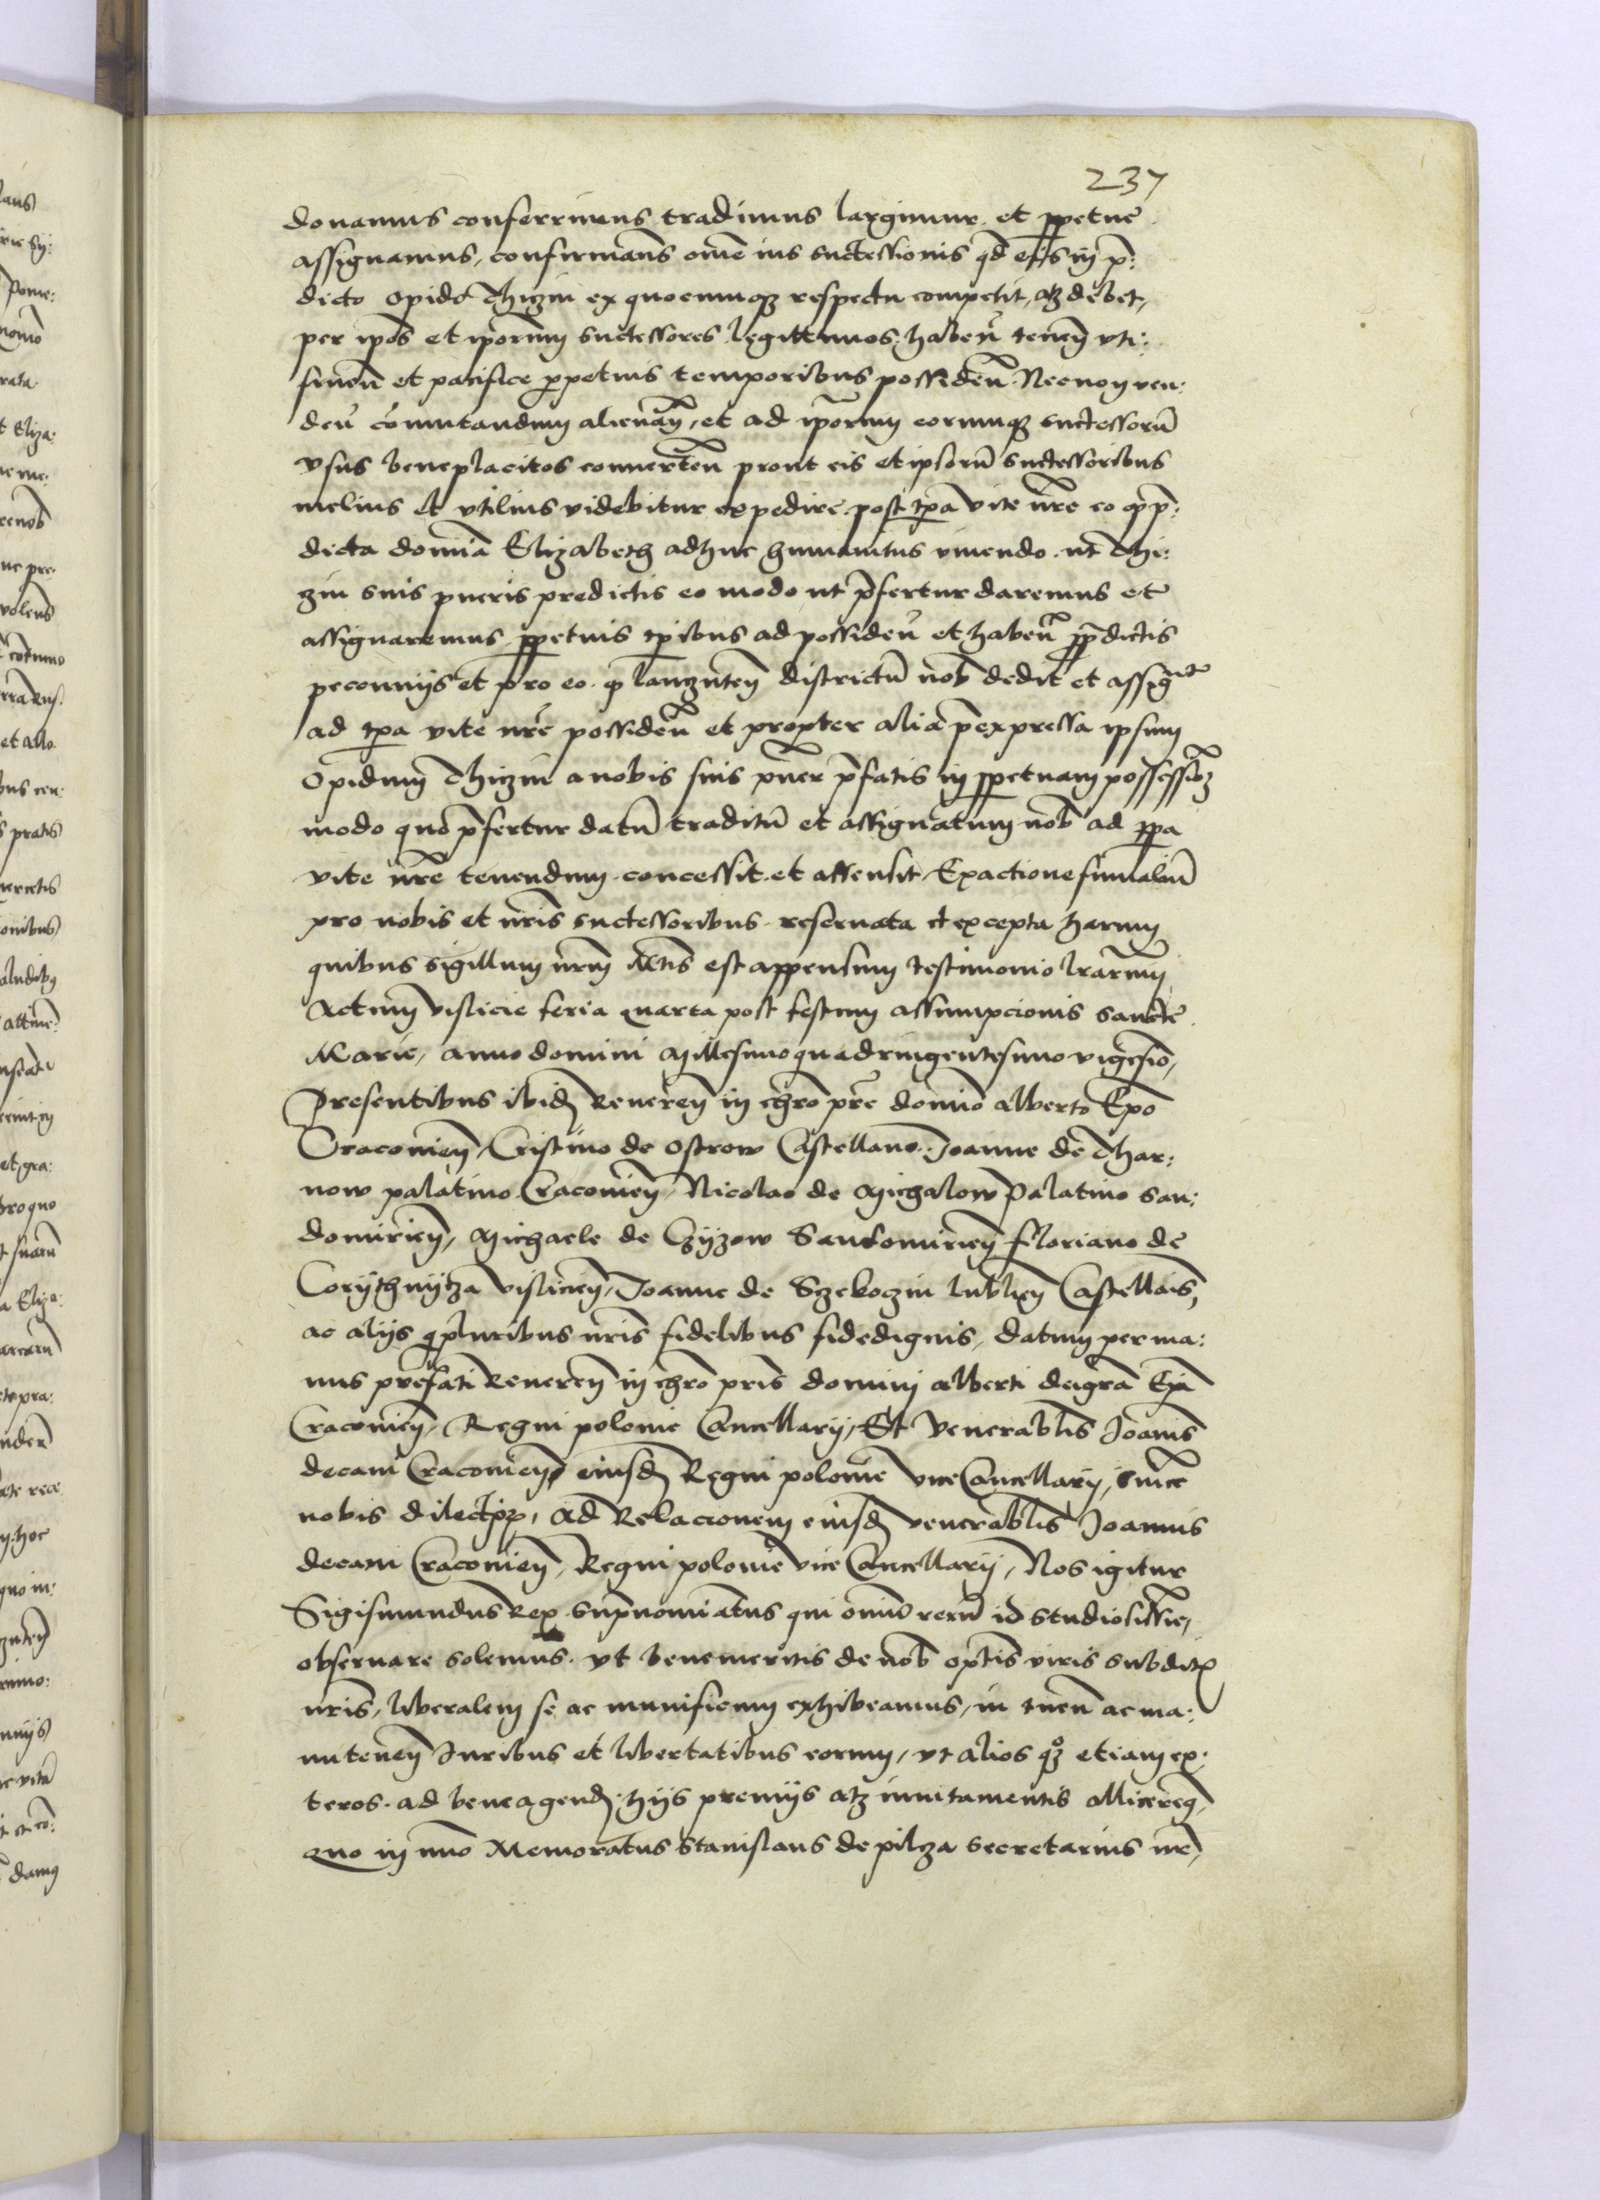 237
donamus conferrimus tradimus largimur et ppetue
assignamus, confirmans ome ius successionis qd eis in p:
dicto opido Thizin ex quocumq respectu competit, atz debet,
per ipos et iporum successores legittimos haben tenen vti:
fruen et pacifice ppetuis temporibus possiden Necnon ven:
den comutandum alienan, et ad iporum eorumq successoru
vsus beneplacitos conuerten prout eis et ipsoru successoribus
melius et vtilius videbitur expedire post tpa vite nre eo q p:
dicta domia Elizabeth adhuc humanitus viuendo ut Thi:
zin suis pueris predictis eo modo ut pfertur daremus et
assignaremus ppetuis tpibus ad possiden et haben pdictis
peconnijs et pro eo q lanzuten districtu nob dedit et assigt
ad tpa vite nre possiden et propter alia pexpressa ipsum
Opidum Thizin a nobis suis puer pfatis in ppetuam possessioz
modo quo pfertur datu traditu et assignatum nob ad tpa
vite nre tenendum concessit et assensit, Exactione fumaliu
pro nobis et nris successoribus reseruata et excepta harum
quibus sigillum nrm Mtis est appensum testimonio lrarum
Actum vislicie feria quarta post festum assumpcionis sancte
Marie, anno domini Millesimo quadringentesimo vigesio,
Presentibus ibid Reueren in chro pre domio alberto Epo
Cracouien, Cristino de ostrow Castellano Joanne de Thar:
now palatino Cracouien, Nicolao de Michalow Palatino san:
domirien, Michaele de Czyzow Sandomirien floriano de
Corythnytza vislicien, Joanne de Szekoczin lublien Castellais,
ac alijs qpluribus nris fidelibus fidedignis, datum per ma:
nus prefati Reueren in chro pris domini alberti dei gra Epi
Cracouien, Regni polonie Cancellarij, Et Venerablis Joanis
decani Cracouien eiusd Regni polonie vice Cancellarij, sincere
nobis dilectorum, ad Relacionem eiusd venerablis Joannis
decani Cracouien, Regni polonie vice Cancellarij, Nos igitur
Sigismundus Rex supnomiatus qui omiu reru id studiosissie,
obseruare solemus vt benemeritis de nob optis viris subditis
nris, liberalem se ac munificum exhibeamus, in tuen ac ma:
nuteneη Juribus et libertatibus eorum, vt alios qoz etiam ex:
teros ad bene agend hijs premijs atz inuitamentis allicereq,
quo in nuo Memoratus Stanislaus de pilza secretarius nr,